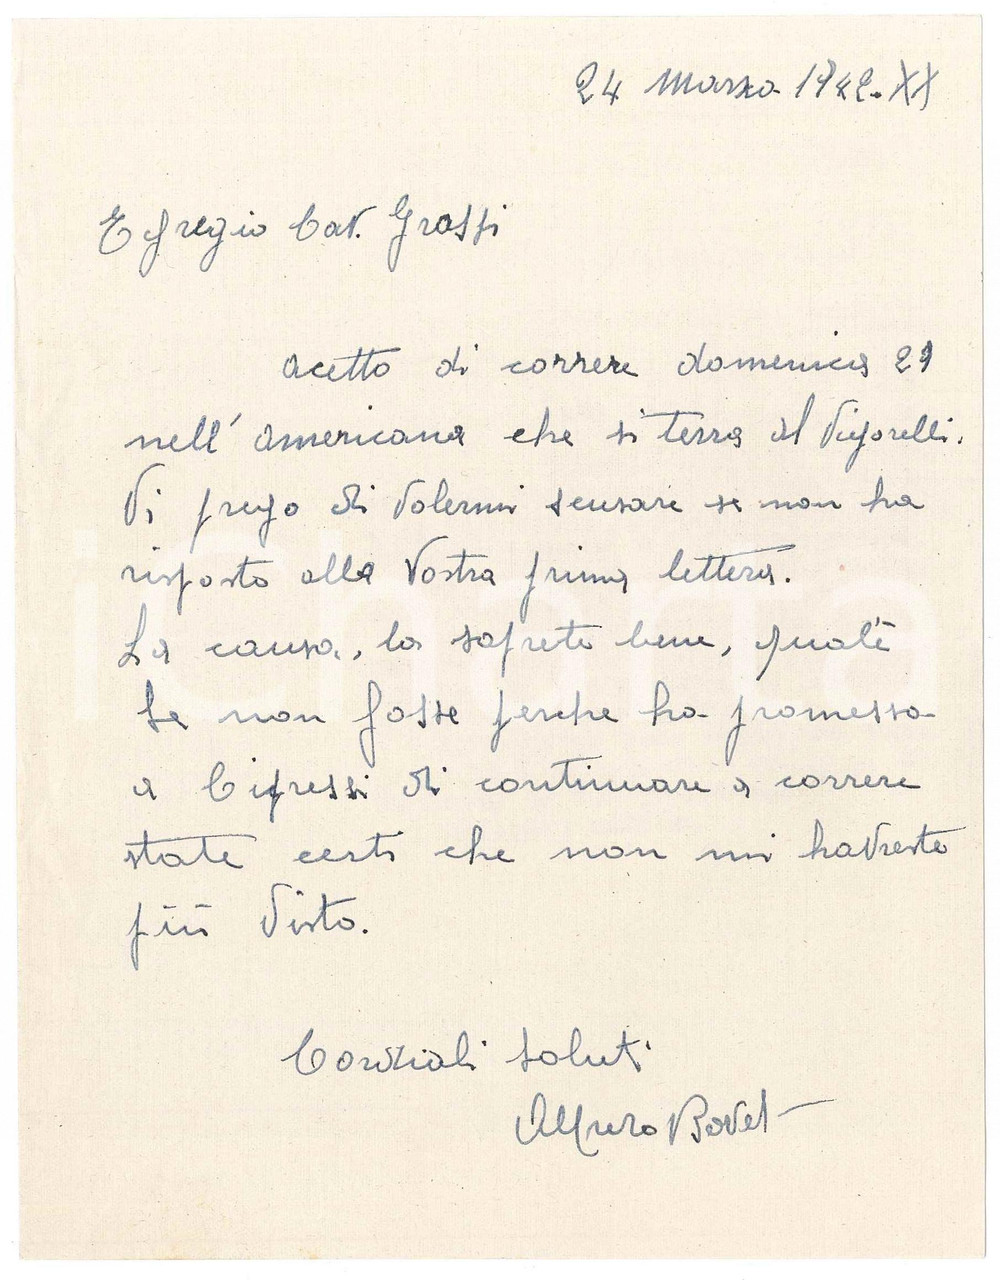 24 Marzo 1942. XX
Egregio Cav. Grassi
acetto di correre domenica 29
nell' americana che si terra al Vigorelli.
Vi prego di volermi scusare se non ha
risposto alla Vostra prima lettera.
La causa, la saprete bene, qual'è
Se non fosse perche ho promesso
a Cipressi di continuare a correre
state certi che non mi havreste
più visto.
Cordiali saluti
Alfredo Bovet
iCharta